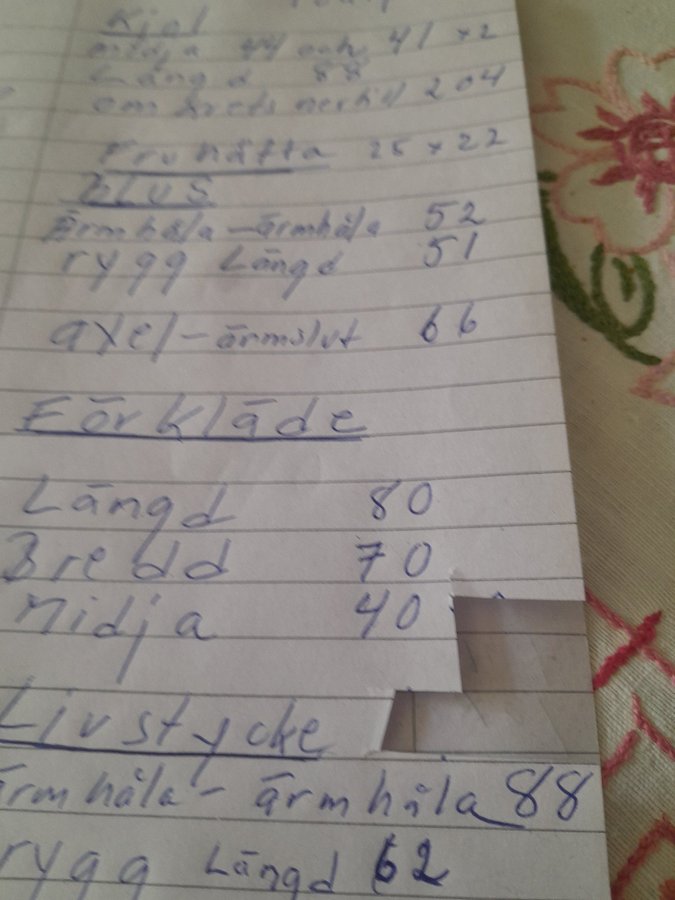 Kjol
midja 44 och 41 x 2
Längd 88
om krets nertil 204
Fru hätta 25 x 22
Blus
Ärmhåla - ärmhåla 52
rygg Längd 51
axel - ärmslut 66
Förkläde
Längd 80
Bredd 70
Midja 40
Livstycke
ärmhåla - ärmhåla 88
rygg Längd 62